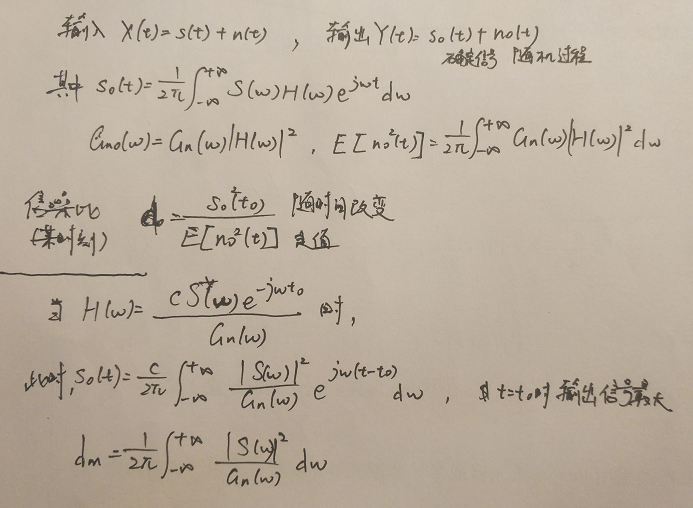 输入 X(t)=s(t)+n(t) , 输出 Y(t)=s₀(t)+n₀(t)
确定信号 随机过程
其中 s₀(t)=\frac{1}{2π}∫_{-∞}^{+∞} S(ω)H(ω)e^{jωt}dω
G_{n0}(ω)=G_n(ω)|H(ω)|² , E[n₀²(t)]=\frac{1}{2π}∫_{-∞}^{+∞} G_n(ω)|H(ω)|²dω
信噪比 d₀=\frac{s₀²(t₀)}{E[n₀²(t)]} 随时间改变
(某时刻) 定值
当 H(ω)=\frac{cS^*(ω)e^{-jωt₀}}{G_n(ω)} 时,
此时,s₀(t)=\frac{c}{2π}∫_{-∞}^{+∞}\frac{|S(ω)|²}{G_n(ω)}e^{jω(t-t₀)}dω , 且t=t₀时输出信号最大
d_m=\frac{1}{2π}∫_{-∞}^{+∞}\frac{|S(ω)|²}{G_n(ω)}dω